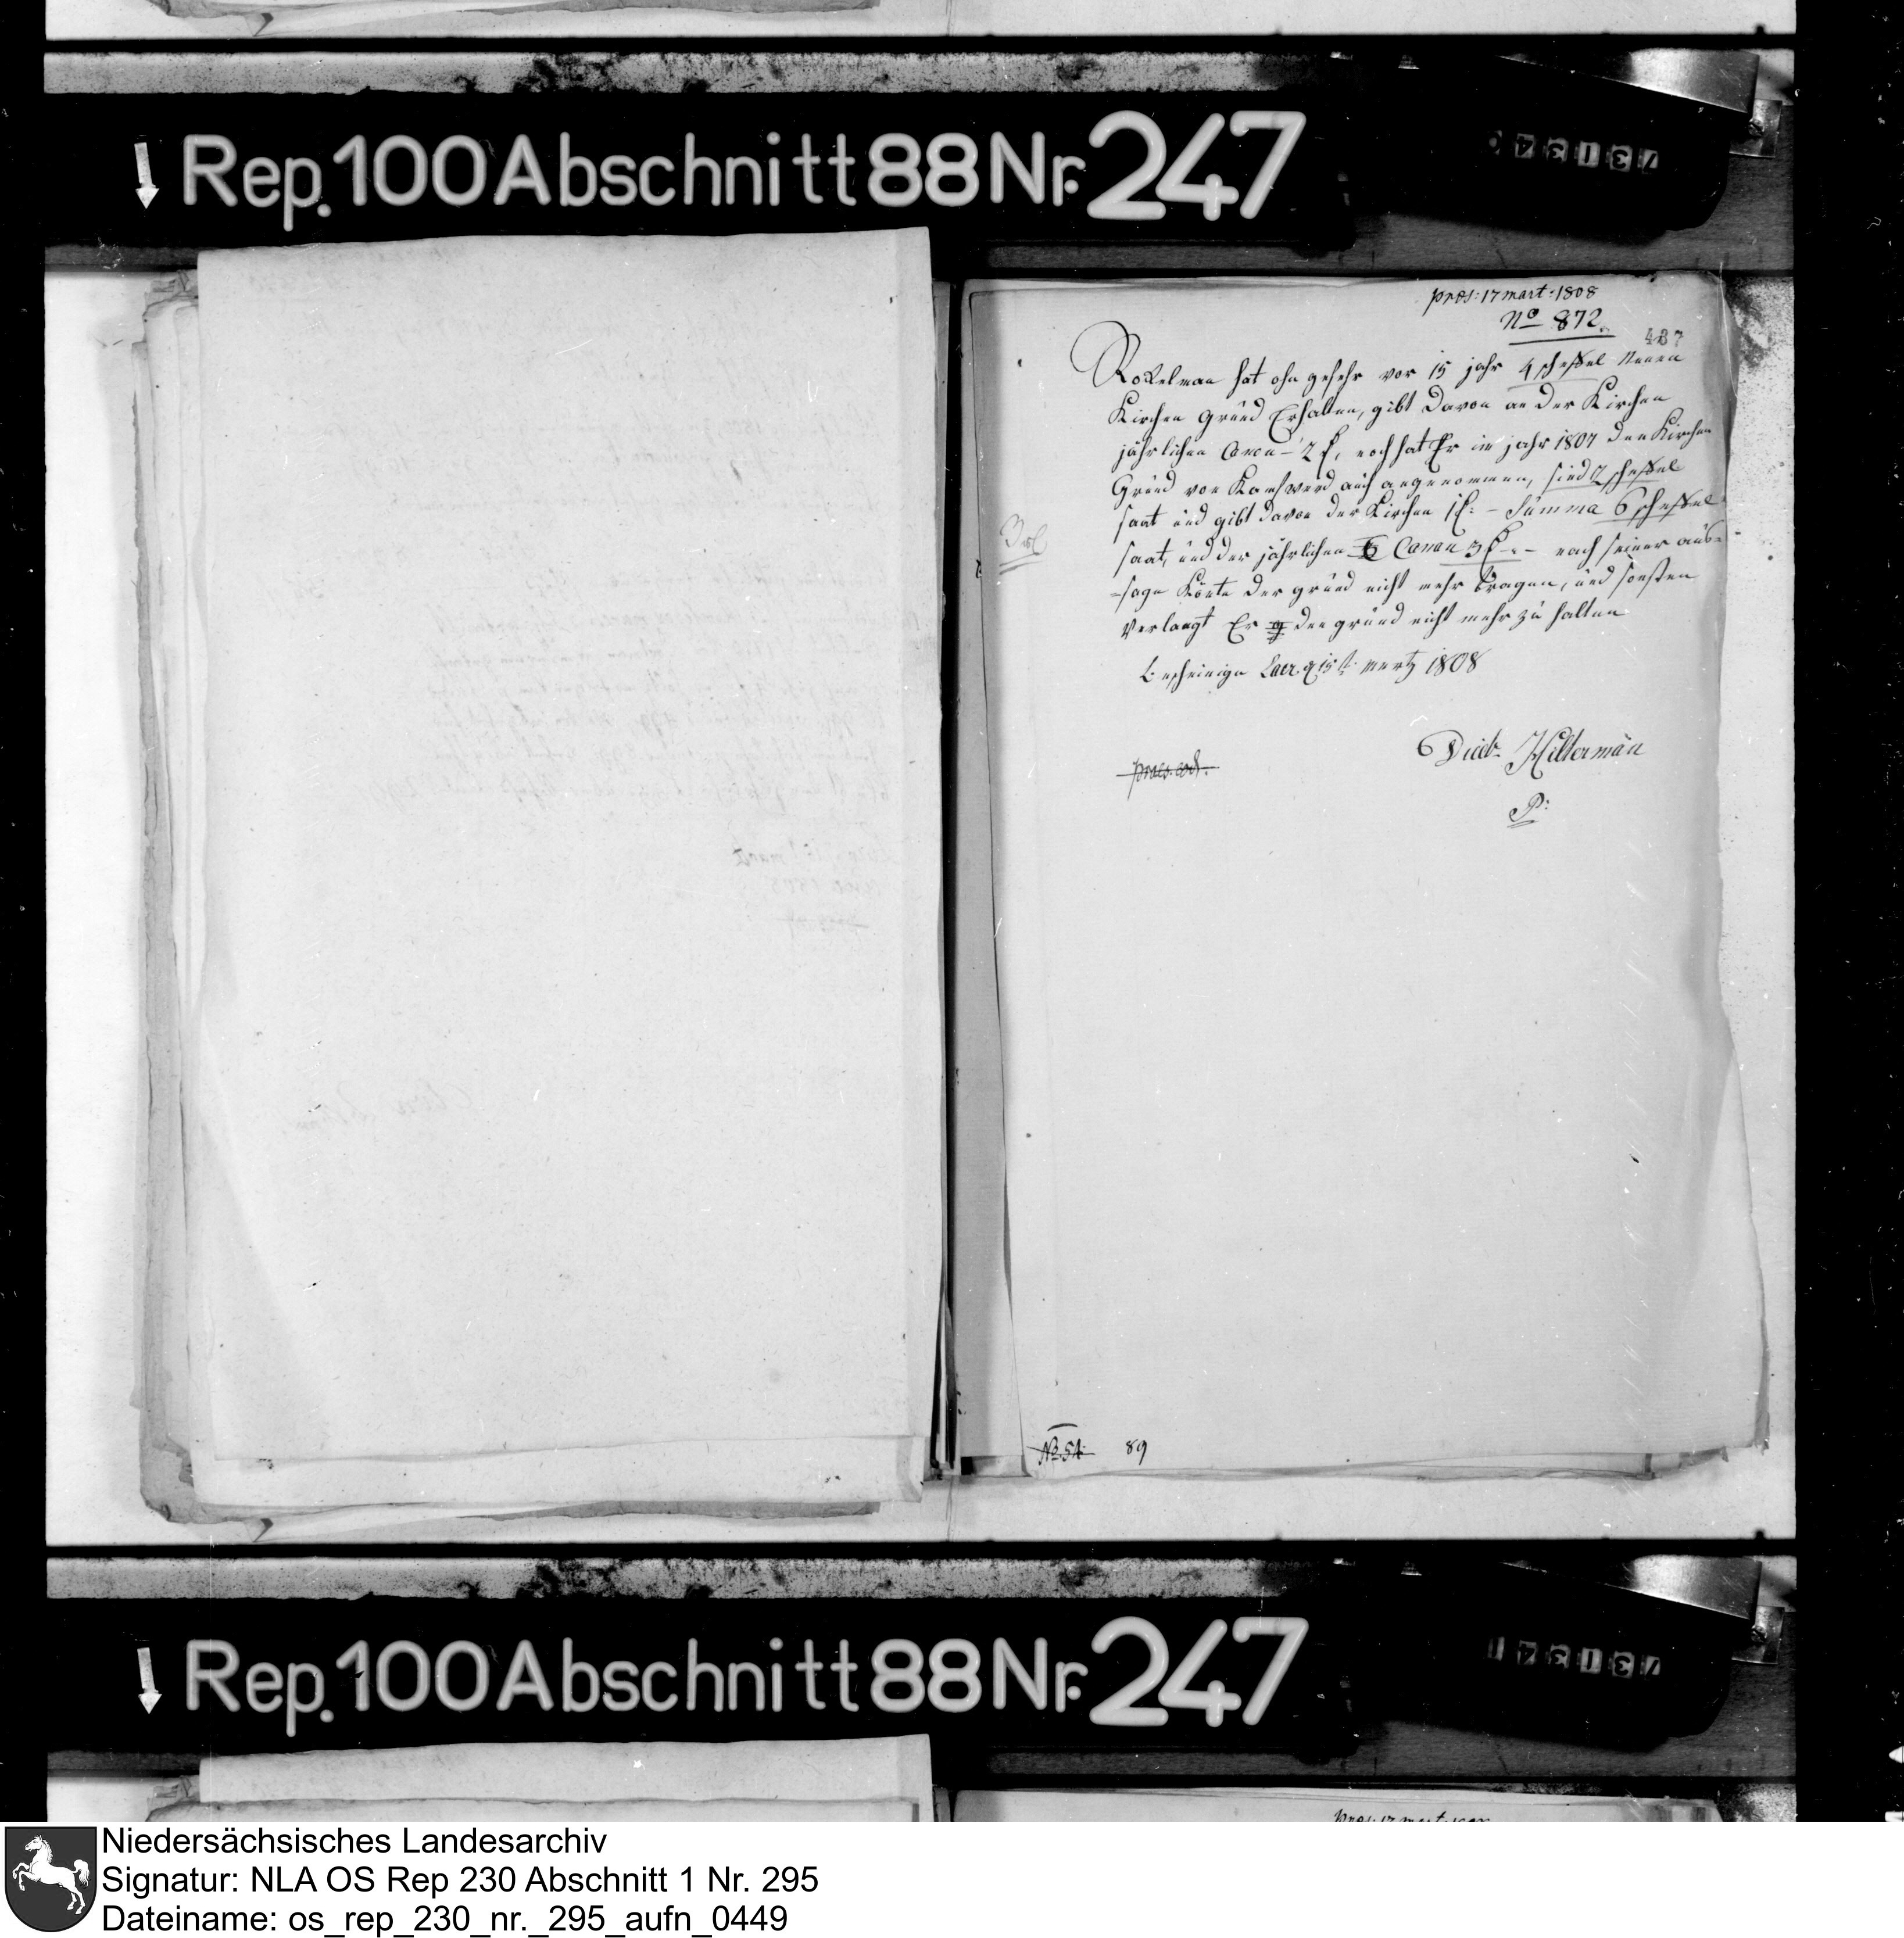 Rep. 100 Abschnitt 88 Nr. 247
pres: 17 mart: 1808
No 872.
437
Rockelman hat ohn gefehr vor 15 jahr 4 scheffel Neuen
Kirchen grund Erhalten, gibt davon an der Kirchen
jährlichen Canon – 2 f, noch hat Er im jahr 1807 den Kirchen
Grund von auch angenommen, sind 2 scheffel
saat und gibt davon der Kirchen 1 f: – Summa 6 scheffel
saat, und der jährlichen Canon 3 f –.– nach seiner aus-
-sage Könte der grund nicht mehr tragen, und sonsten
Verlangt Er den grund nicht mehr zu halten
bescheinige Laer 15t mertz 1808
Dieder: Hilterman
P:
No. 54. 89
Rep. 100 Abschnitt 88 Nr. 247
Niedersächsisches Landesarchiv
Signatur: NLA OS Rep 230 Abschnitt 1 Nr. 295
Dateiname: os_rep_230_nr._295_aufn_0449